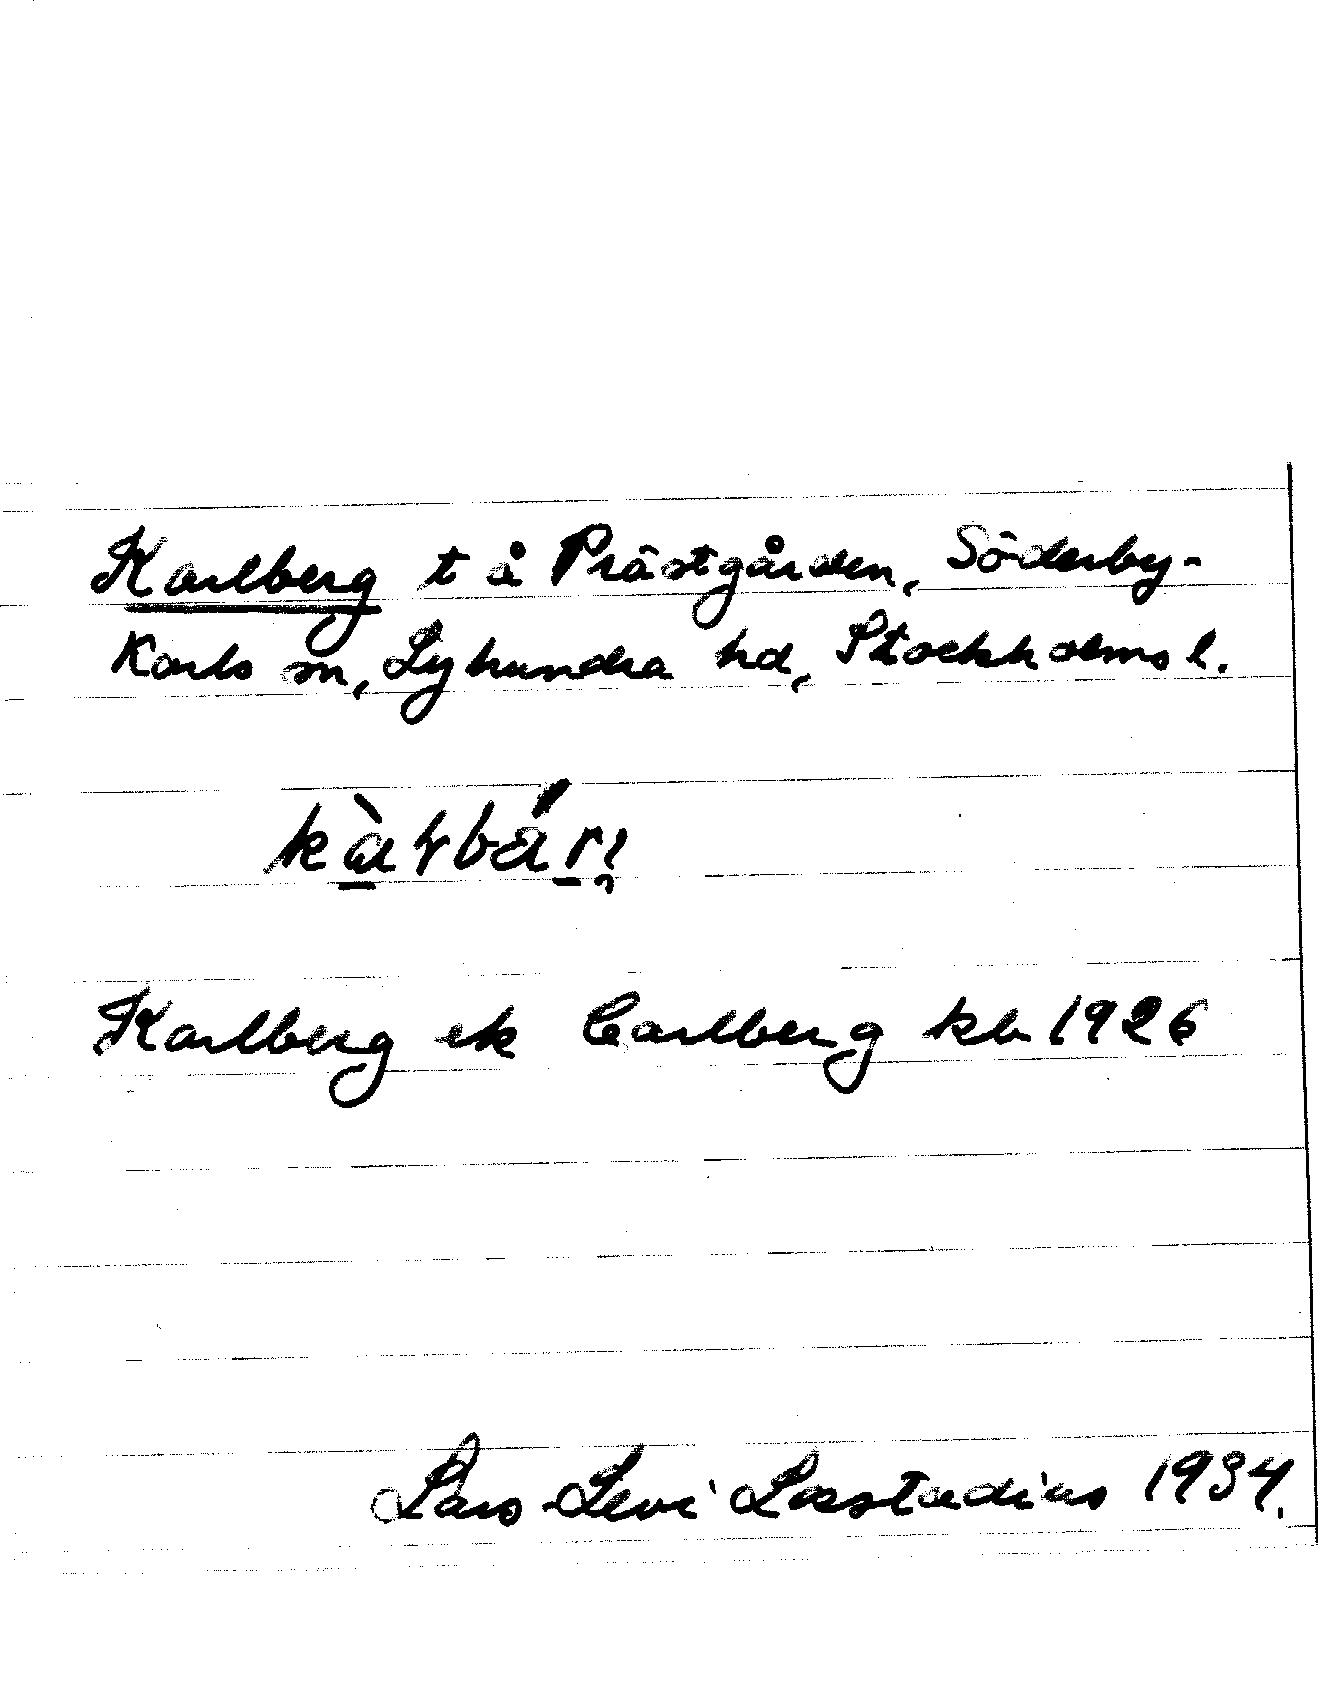 Karlberg t å Prästgården, Söderby-
Karls sn, Lyhundra hd, Stockholms l.
Karlberg ek Carlberg kb 1926
Lars-Levi Læstadius 1934.